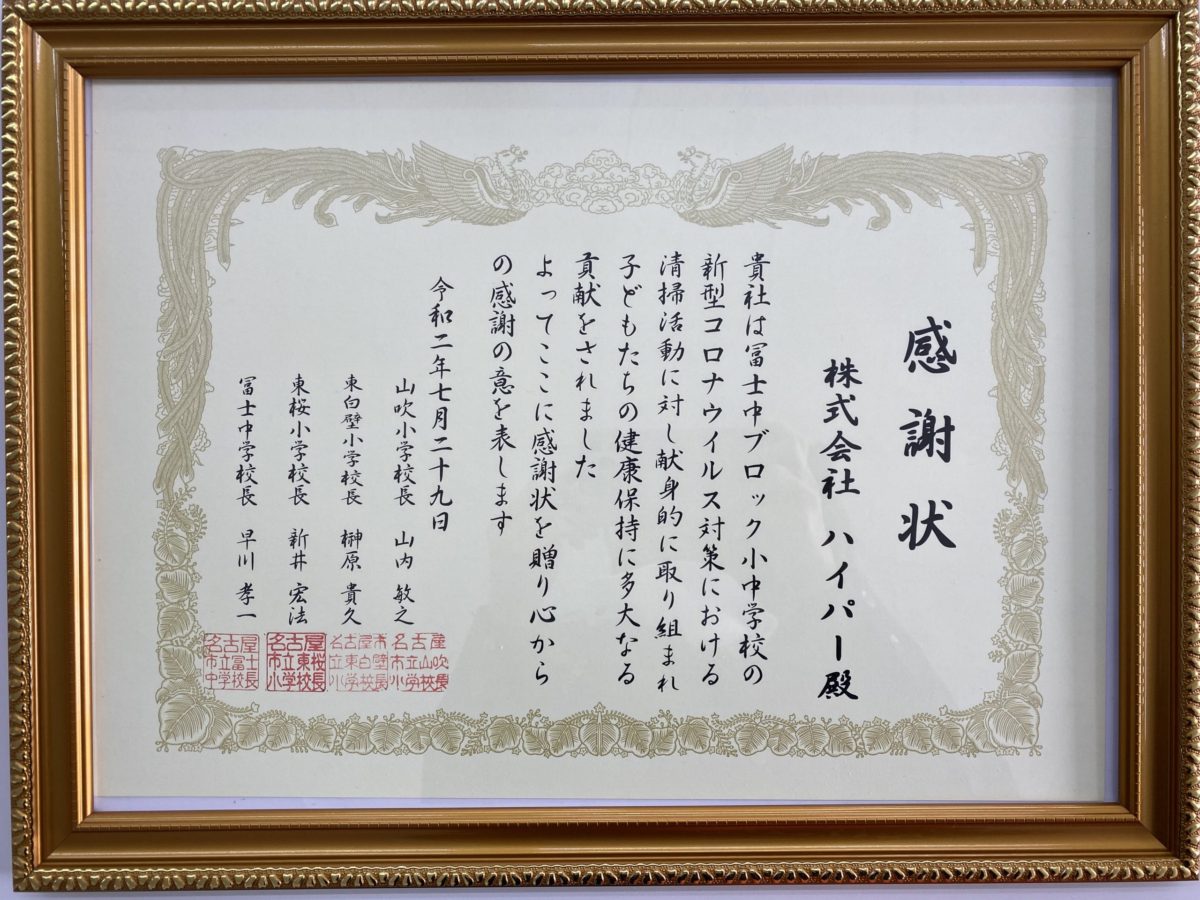 感謝状
株式会社 ハイパー殿
貴社は冨士中ブロック小中学校の
新型コロナウイルス対策における
清掃活動に対し献身的に取り組まれ
子どもたちの健康保持に多大なる
貢献をされました
よってここに感謝状を贈り心から
の感謝の意を表します
令和二年七月二十九日
山吹小学校長 山内 敏之
東白壁小学校長 榊原 貴久
東桜小学校長 新井 宏法
冨士中学校長 早川 孝一
名古屋
市立山吹
小学校長
名古屋市
立東白壁
小学校長
名古屋
市立東桜
小学校長
名古屋
市立冨士
中学校長